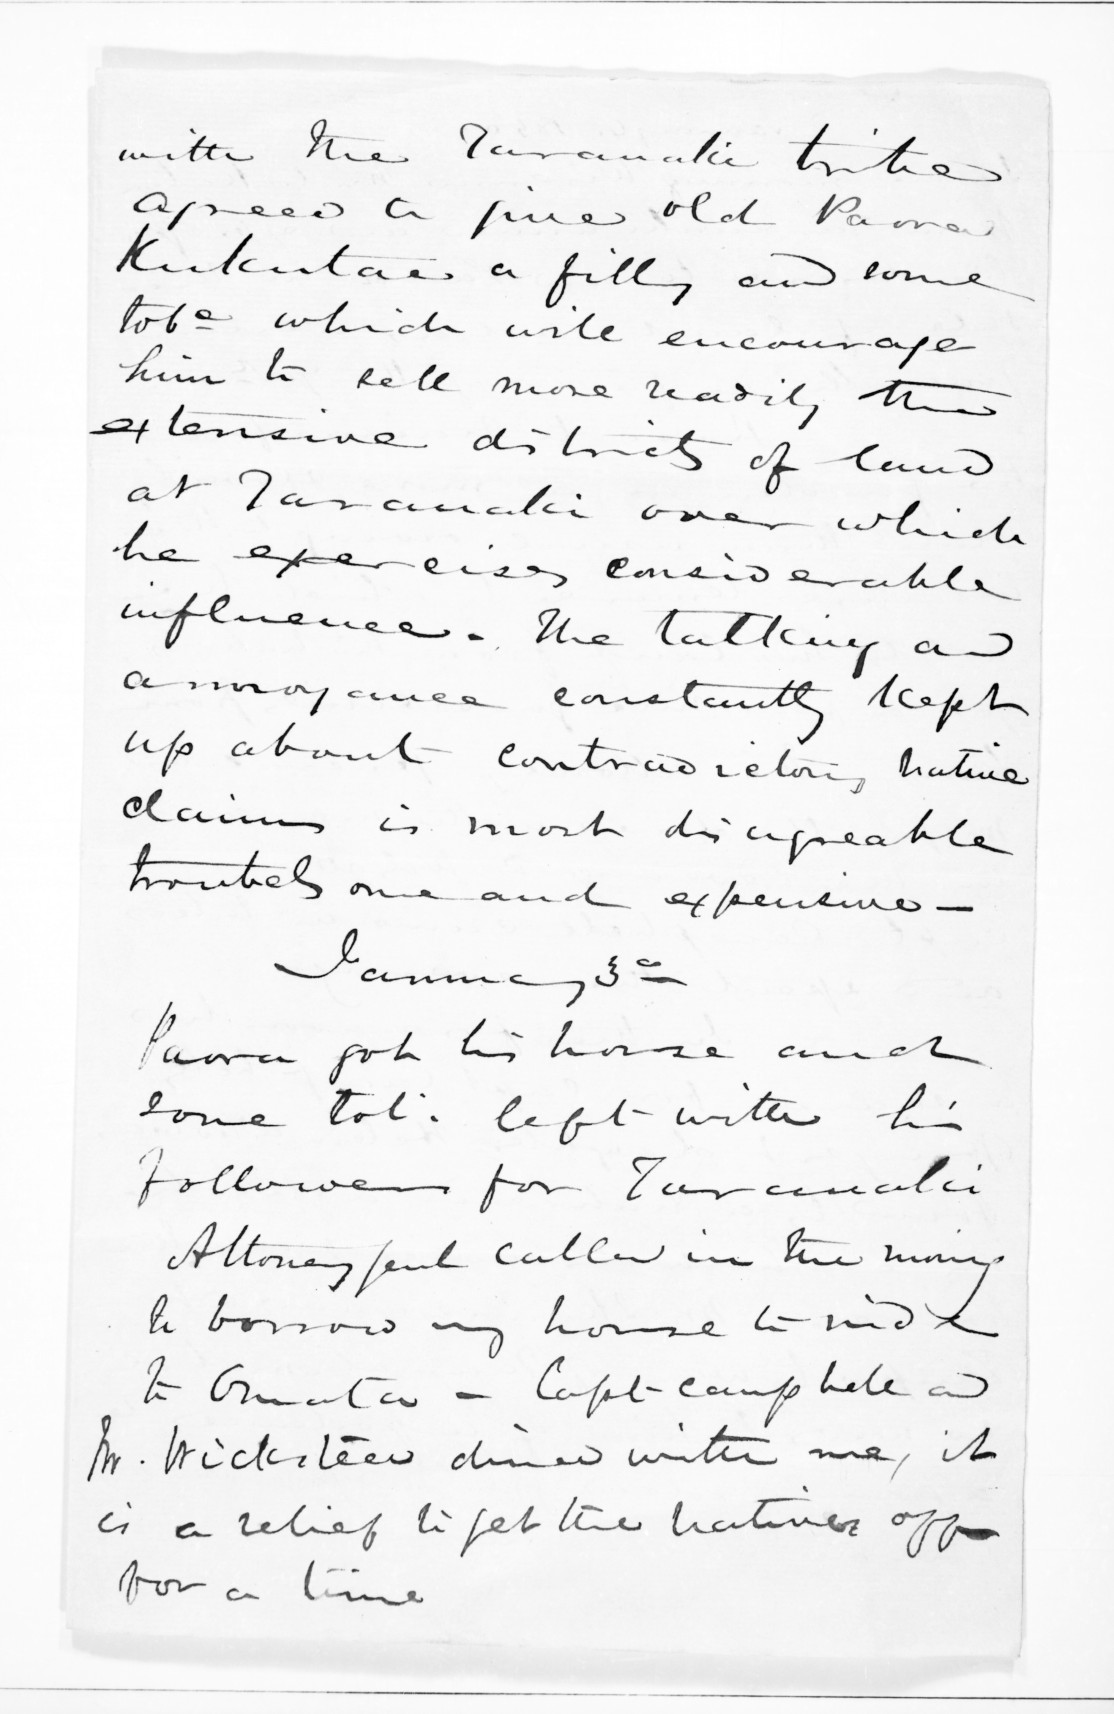 with the Taranaki tribe
agreed to give old Paora
Kukutae a filly and some
tobe which will encourage
him to sell more readily the
extensive districts of land
at Taranaki over which
he exercises considerable
influence. The talking and
annoyance constantly kept
up about contradictory native
claims is most disagreable
troubelsome and expensive —
January 3d
Paora got his horse and
some tobe. left with his
followers for Taranaki
Attorney Genl called in the morng
to borrow my horse to ride
to Omata — Capt Campbell and
Mr. Wicksteed dined with me, it
is a relief to get the natives off
for a time